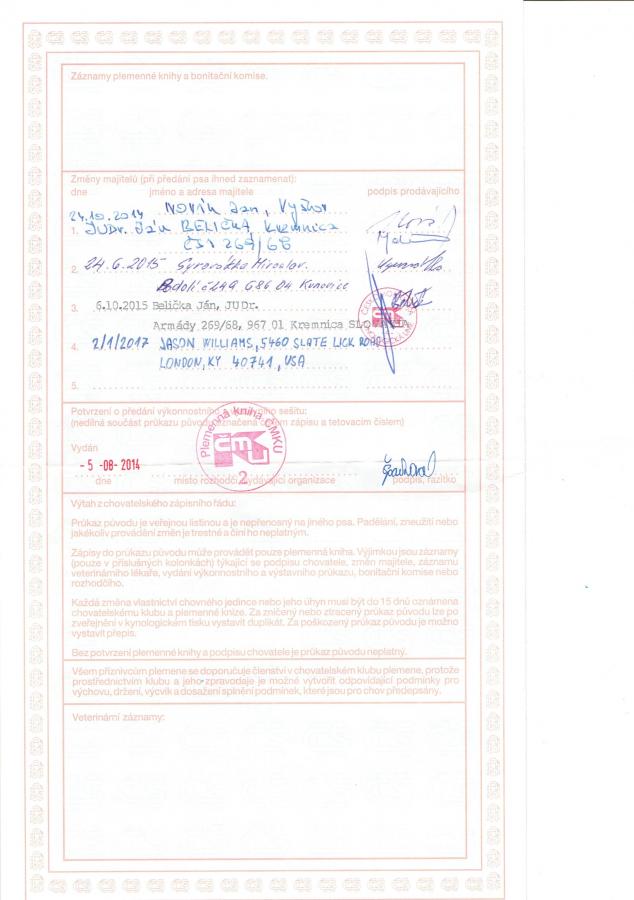 Záznamy plemenné knihy a bonitační komise.
Změny majitelů (při předání psa ihned zaznamenat):
dne jméno a adresa majitele podpis prodávajícího
24.10.2014 Jan,
1. JUDr. Ján BELIČKA, Kremnica
ČSA 269/68
2. 24.6.2015 Miroslav.
686 04 Kunovice
3. 6.10.2015 Belička Ján, JUDr.
Armády 269/68, 967 01 Kremnica
4. 2/1/2017 JASON WILLIAMS, 5460 SLATE LICK ROAD
LONDON, KY 40741, USA
5.
Potvrzení o předání výkonnostního sešitu:
(nedílná součást průkazu původu označená číslem zápisu a tetovacím číslem)
Plemenná Kniha ČMKU
2
Vydán
- 5 -08- 2014
dne místo vydávající organizace podpis, razítko
Výtah z chovatelského zápisního řádu:
Průkaz původu je veřejnou listinou a je nepřenosný na jiného psa. Padělání, zneužití nebo
jakékoliv provádění změn je trestné a činí ho neplatným.
Zápisy do průkazu původu může provádět pouze plemenná kniha. Výjimkou jsou záznamy
(pouze v příslušných kolonkách) týkající se podpisu chovatele, změn majitele, záznamu
veterinárního lékaře, vydání výkonnostního a výstavního průkazu, bonitační komise nebo
rozhodčího.
Každá změna vlastnictví chovného jedince nebo jeho úhyn musí být do 15 dnů oznámena
chovatelskému klubu a plemenné knize. Za zničený nebo ztracený průkaz původu lze po
zveřejnění v kynologickém tisku vystavit duplikát. Za poškozený průkaz původu je možno
vystavit přepis.
Bez potvrzení plemenné knihy a podpisu chovatele je průkaz původu neplatný.
Všem příznivcům plemene se doporučuje členství v chovatelském klubu plemene, protože
prostřednictvím klubu a jeho zpravodaje je možné vytvořit odpovídající podmínky pro
výchovu, držení, výcvik a dosažení splnění podmínek, které jsou pro chov předepsány.
Veterinární záznamy: